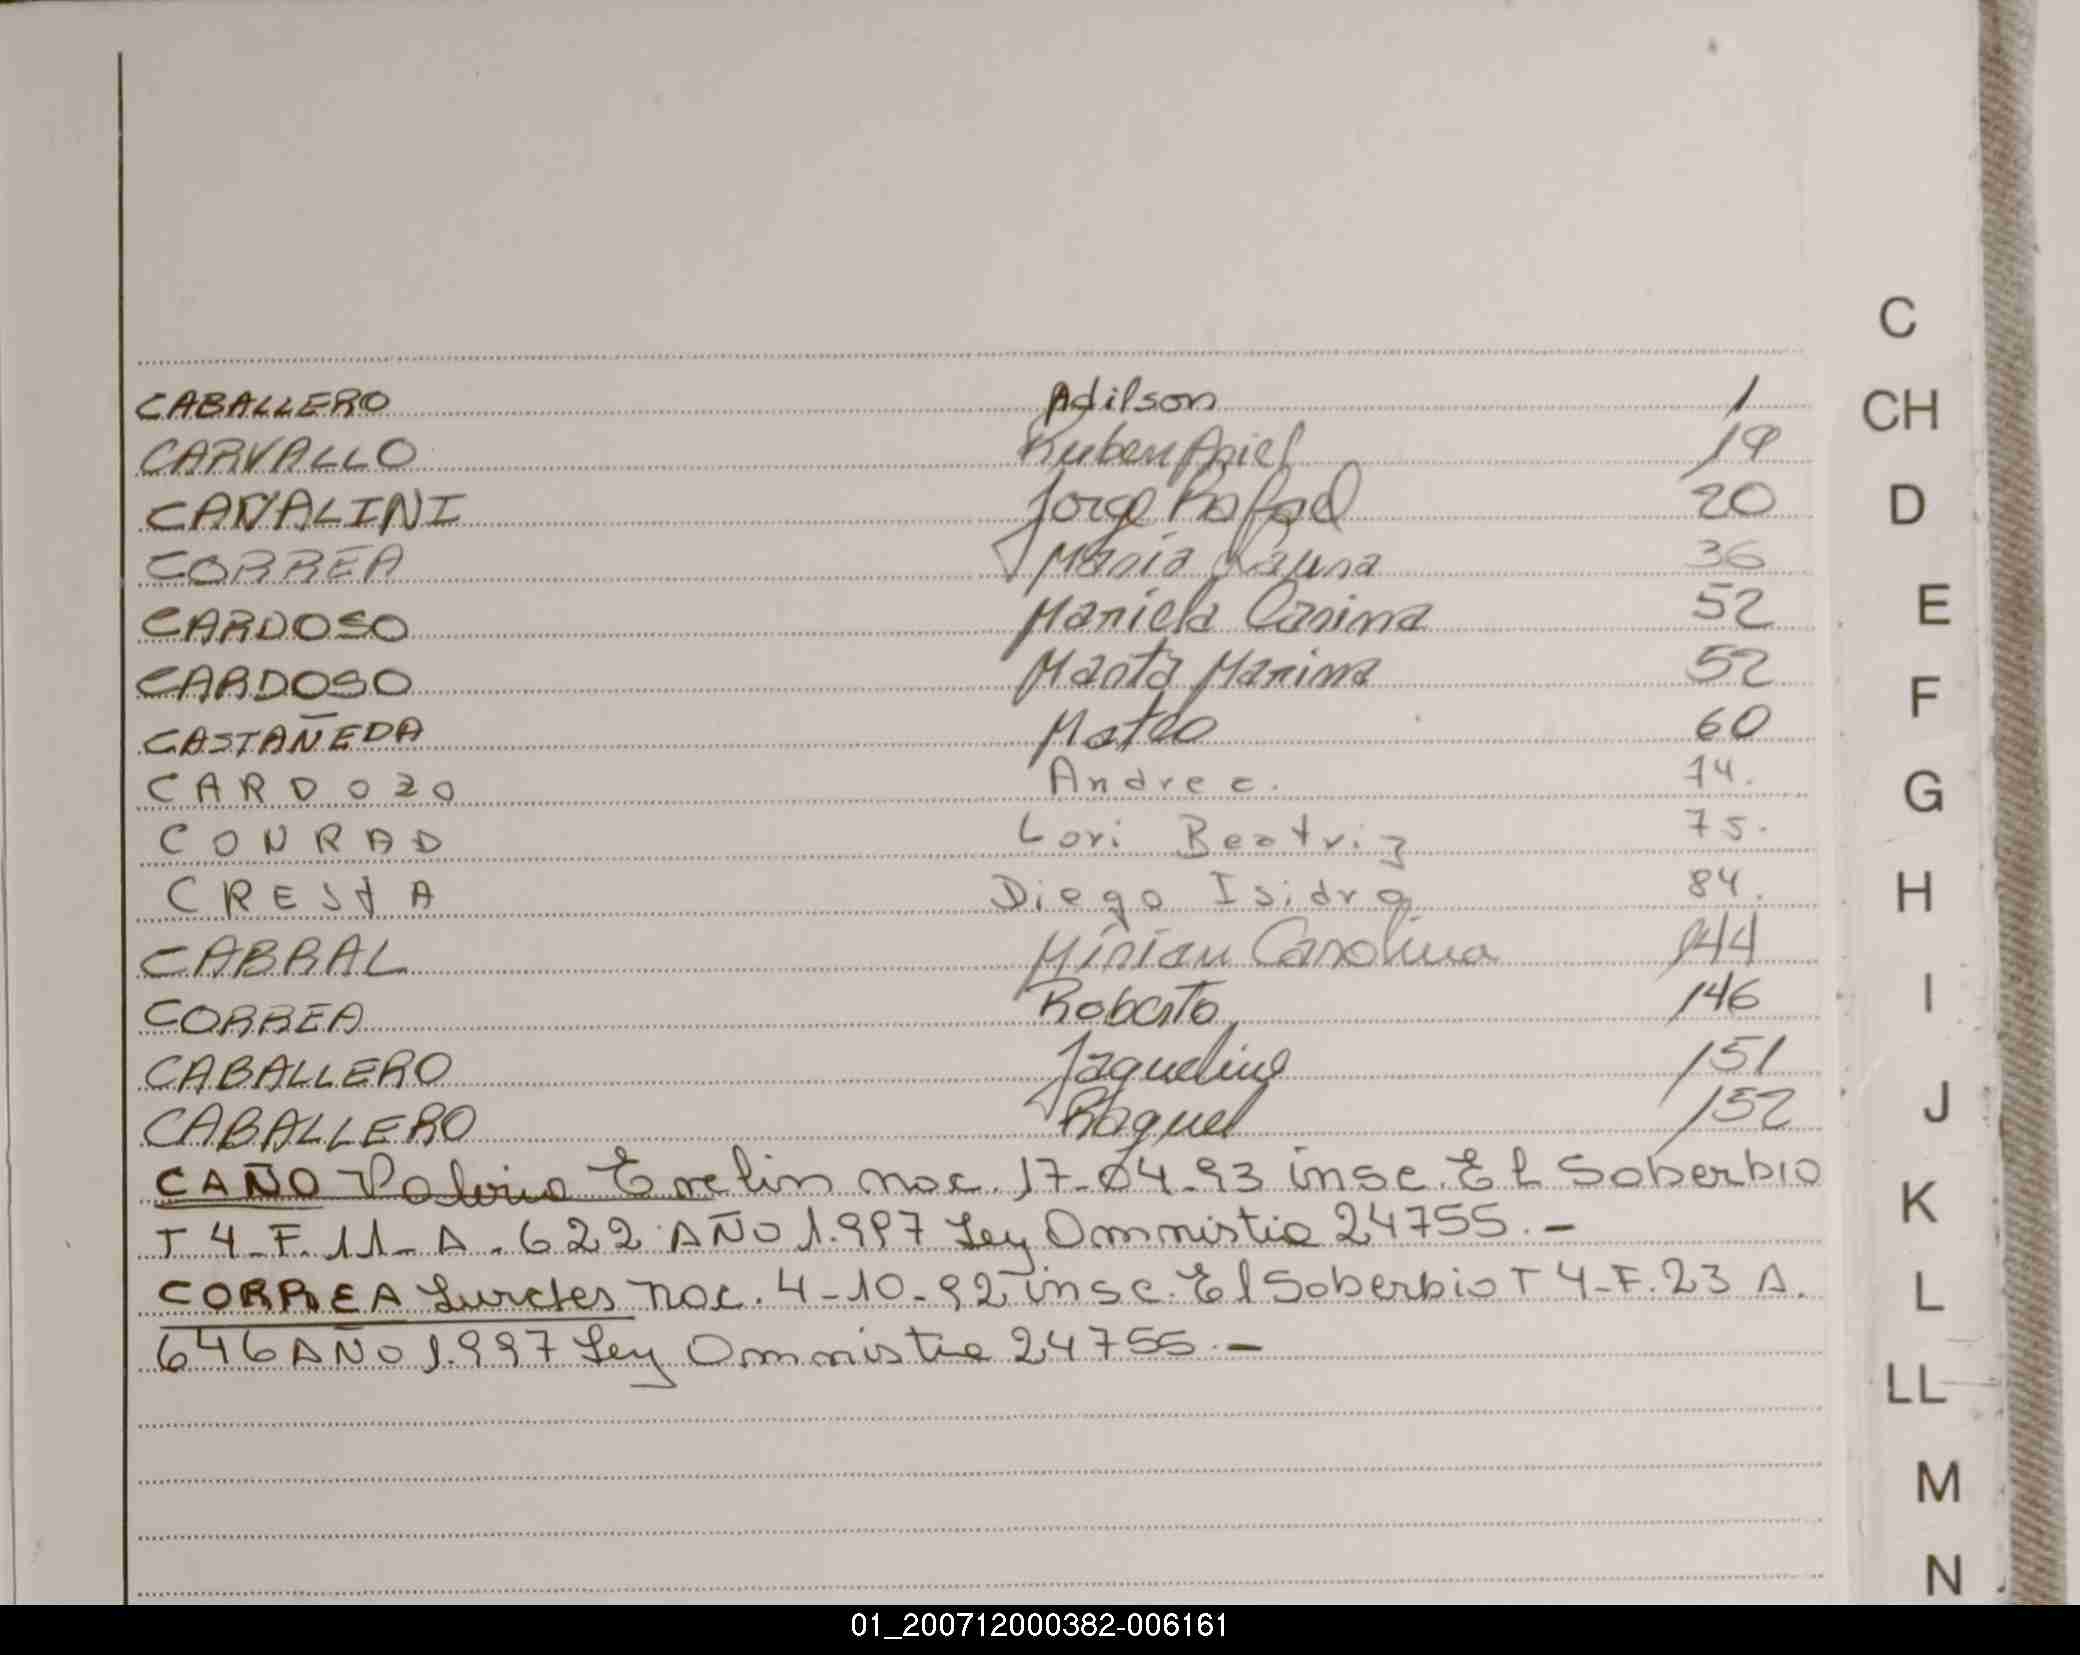 C
CABALLERO Adilson 1
CH
CARVALLO Ruben Ariel 19
CAVALINI Jorge Rafael 20
D
CORREA Maria Laura 36
CARDOSO Mariela Carina 52
E
CARDOSO Marta Marina 52
F
CASTAÑEDA Mateo 60
CARDOZO Andrea. 74.
G
CONRAD Lori Beatriz 75.
CRESTA Diego Isidro 84.
H
CABRAL Mirian Carolina 144
CORREA Roberto 146
I
CABALLERO Jaqueline 151
CABALLERO Raquel 152
J
CAÑO Valeria Evelin nac. 17-04-93 insc. El Soberbio
K
T 4-F.11-A.622 AÑO 1.997 Ley Ommistia 24755.-
CORREA Lurdes nac. 4-10-92 insc. El Soberbio T 4-F.23 A.
L
646 AÑO 1.997 Ley Ommistia 24755.-
LL
M
N
01_200712000382-006161